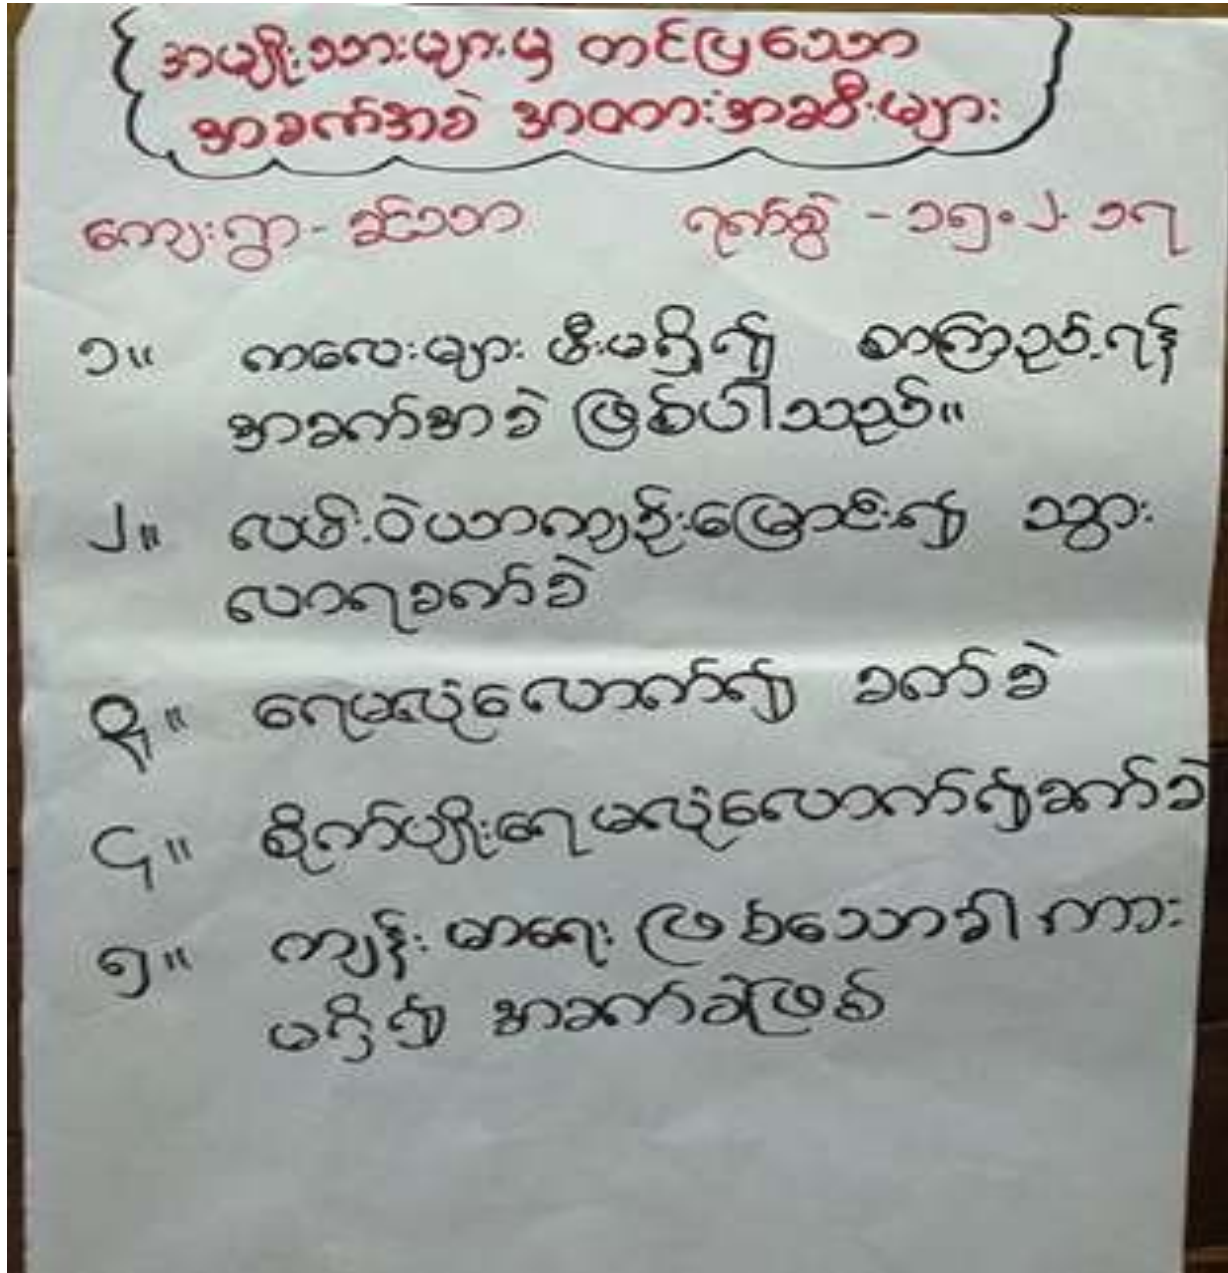 အမျိုးသားများမှ တင်ပြသော
အခက်အခဲ အတားအဆီးများ
ကျေးရွာ - ခင်သာ ရက်စွဲ - ၁၅.၂.၁၇
၁။ ကလေးများ မီးမရှိ၍ စာကြည့်ရန်
အခက်အခဲ ဖြစ်ပါသည်။
၂။ လမ်းပဲယာကျဉ်းမြောင်း၍ သွား
လာရခက်ခဲ
၃။ ရေမလုံလောက်၍ ခက်ခဲ
၄။ စိုက်ပျိုးရေမလုံလောက်၍ခက်ခဲ
၅။ ကျန်းမာရေး ဖြစ်သောခါ ကား
မရှိ၍ အခက်ခဲဖြစ်